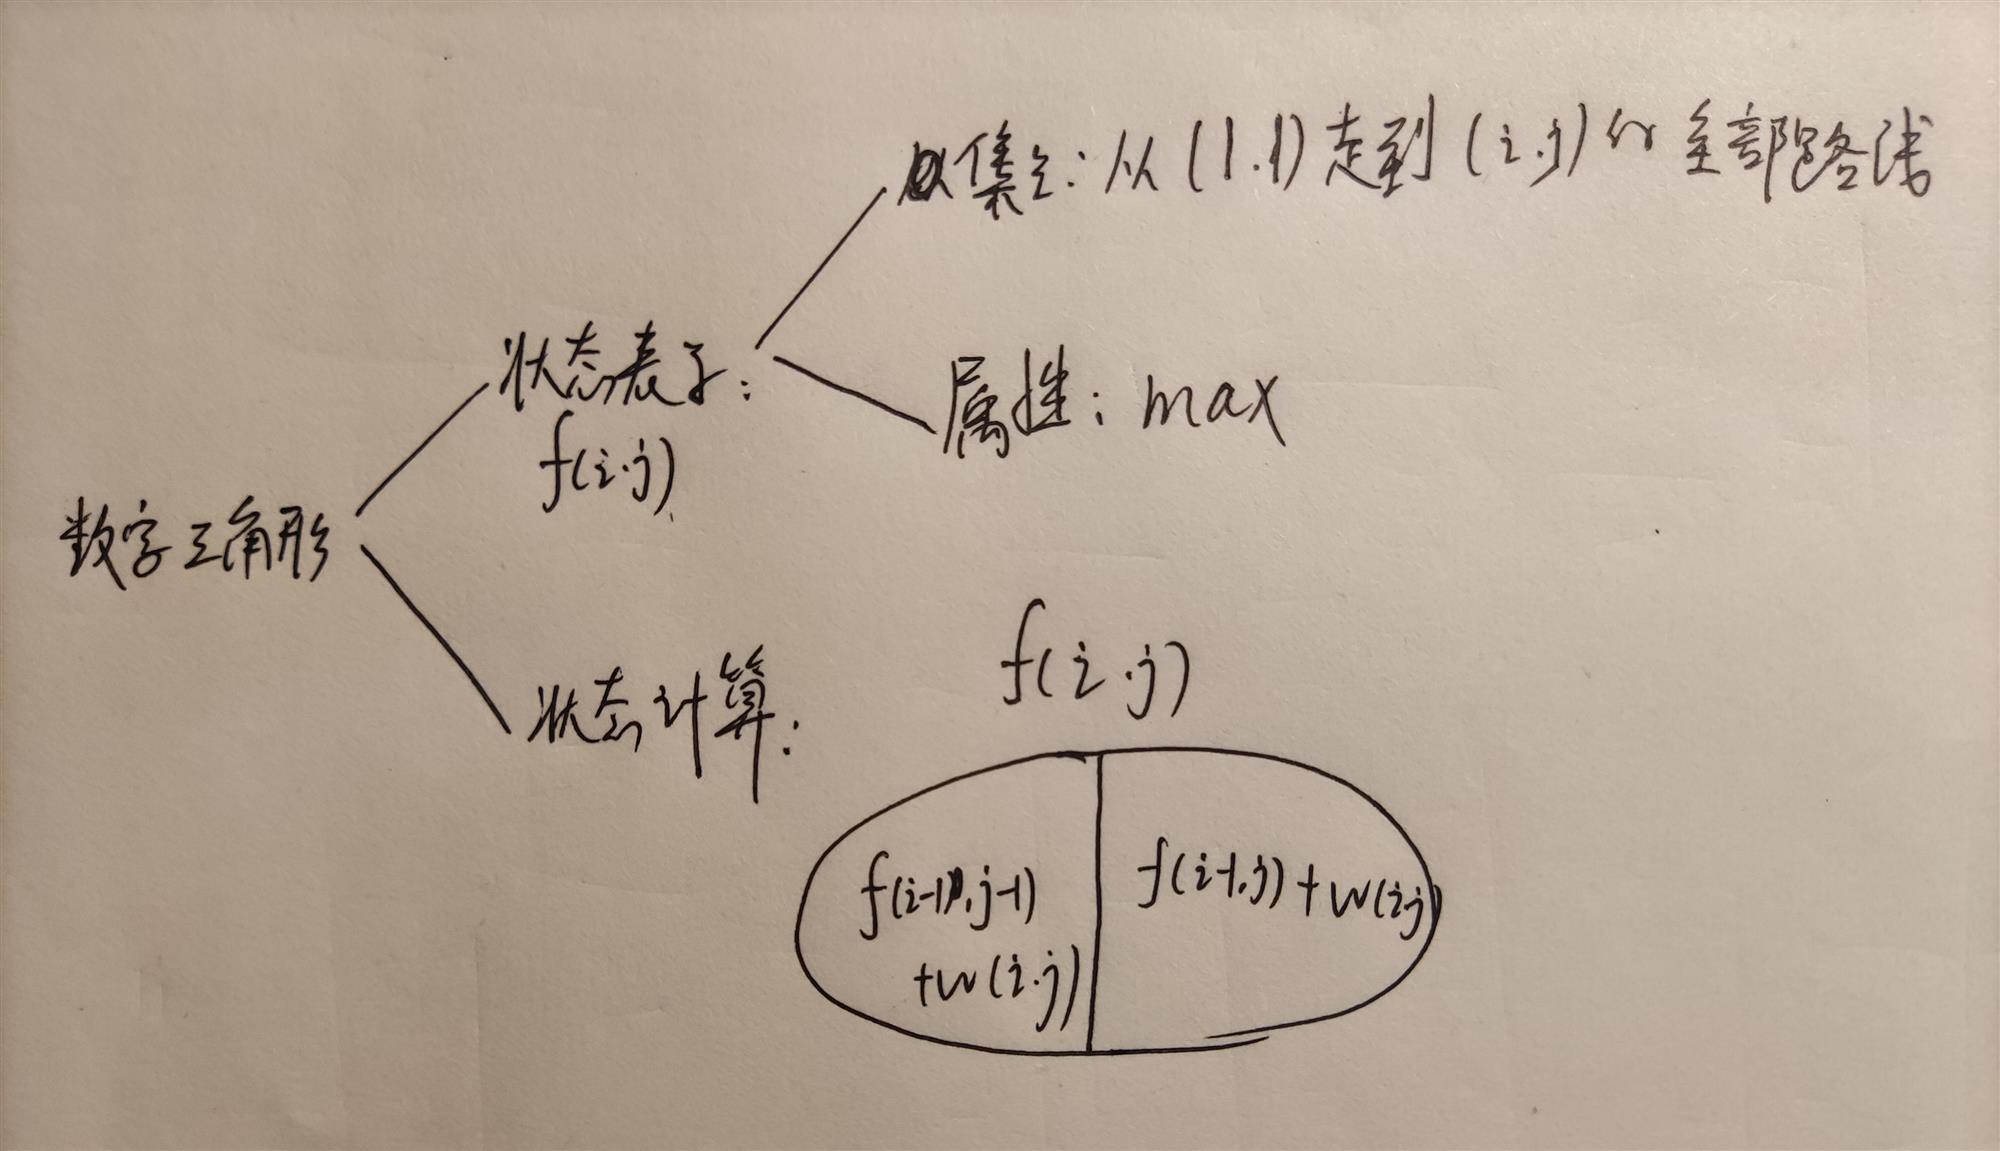 集合：从(1.1)走到(i.j)的全部路线
状态表示：
f(i.j)
属性：max
数字三角形
状态计算：
f(i.j)
f(i-1,j-1)
+w(i.j)
f(i-1.j)+w(i.j)